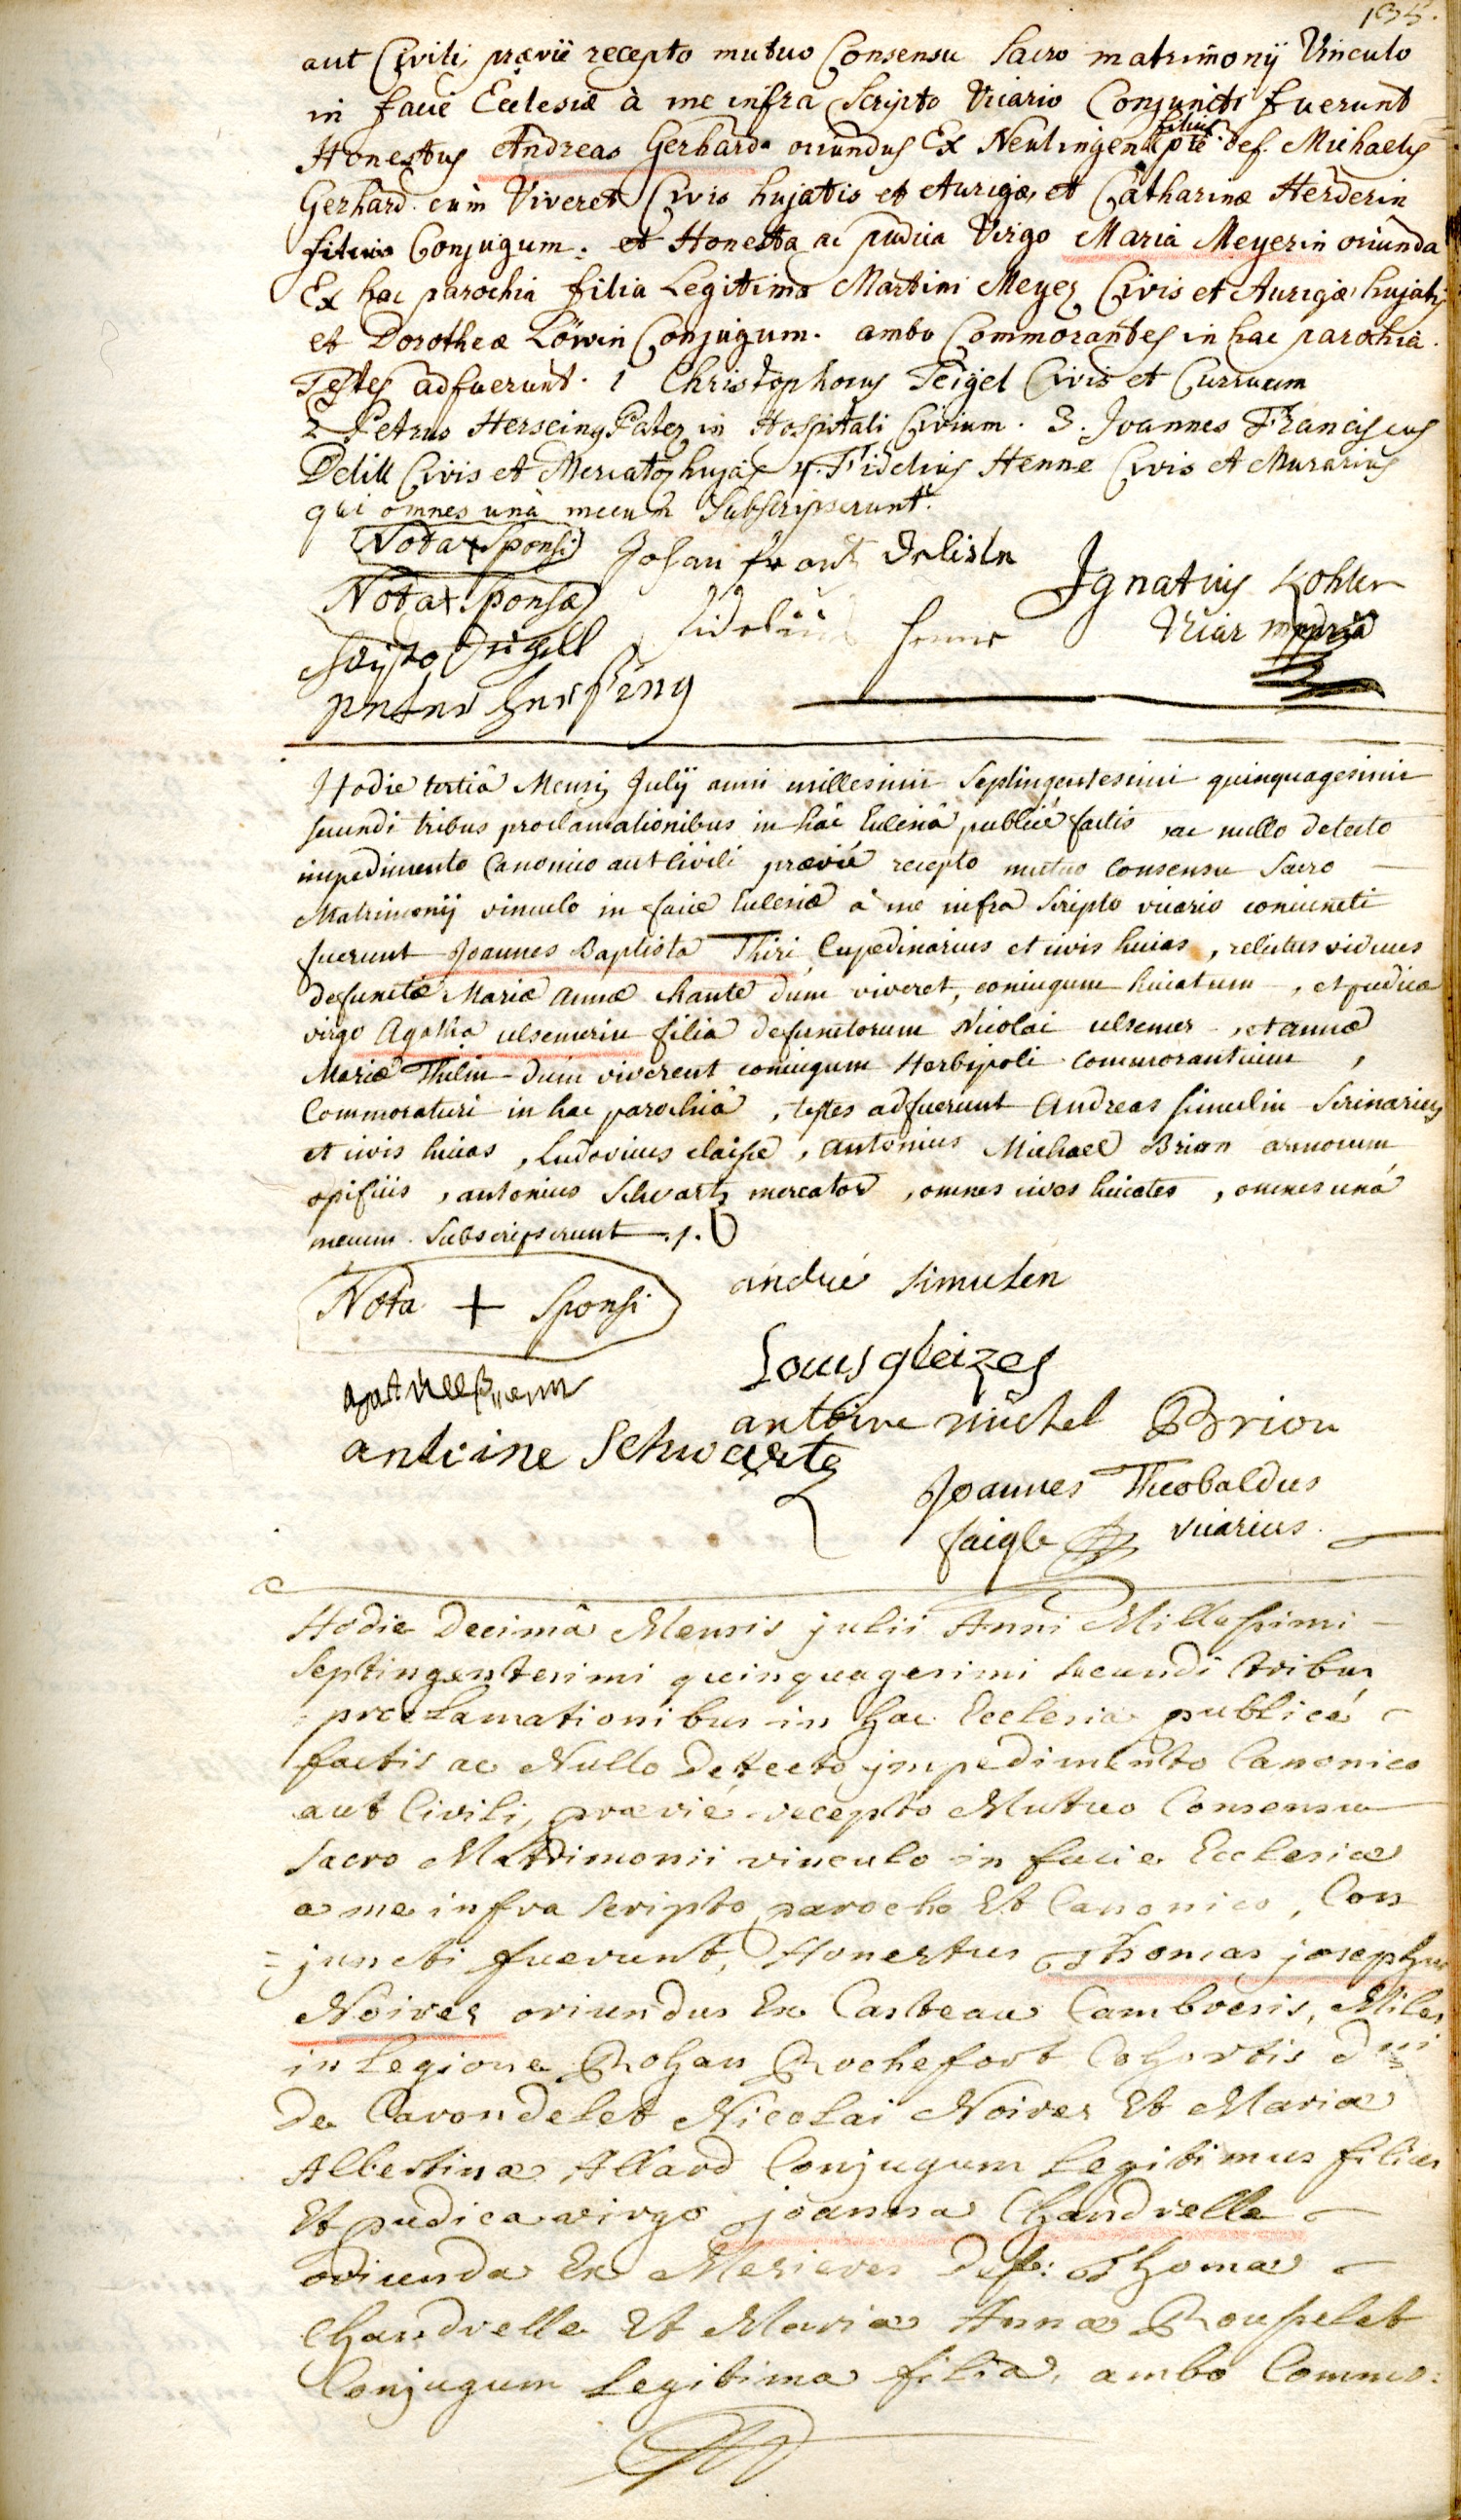 135.
aut Civili, prævie recepto mutuo Consensu Sacro matrimonij Vinculo
in facie Ecclesiæ à me infra Scripto Vicario Conjuncti fuerunt
Honestus Andreas Gerhard oriundus Ex Neulingen filius pie def. Michaelis
Gerhard cum Viveret Civis hujatis et Aurigæ, et Catharinæ Herderin
filius Conjugum. et Honesta ac pudica Virgo Maria Meyerin oriunda
Ex hac parochia filia Legitima Martini Meyer Civis et Aurigæ hujatis
et Dorotheæ Löwin Conjugum. ambo Commorantes in hac parochia.
Testes adfuerunt. 1 Christophorus Feigel Civis et Curruum
2 Petrus Herseing Pater in Hospitali Civium. 3. Joannes Franciscus
Delill Civis et Mercator hujas 4. Fidelius Henne Civis et Murarius
qui omnes unà mecum Subscripserunt.
Nota x Sponsi Johan frantz Delisle
Ignatius Kohler
Nota x Sponsæ fidelius henne Vicar mppria
peter herseing
Hodie tertiâ Mensis Julij anni millesimi Septingentesimi quinquagesimi
secundi tribus proclamationibus in hâc Eclesiâ publicè factis, ac nullo detecto
impedimento Canonico aut Civili prævie recepto mutuo Consensu Sacro
Matrimonij vinculo in facie Eclesiæ à me infra Scripto vicario coniuncti
fuerunt Joannes Baptista Thiri Cupedinarius et civis huias, relictus viduus
defunctæ Mariæ Annæ chante dum viveret, coniugum huiatum, et pudica
virgo Agatha ulsemerin filia defunctorum Nicolai ulsemer, et annæ
Mariæ Thilin dum viverent coniugum Herbipoli Commorantium,
Commoraturi in hac parochiâ, testes adfuerunt Andreas simulin Scrinarius
et civis huias, Ludovicus claise, Antonius Michael Brion armorum
opificis, antonius Schvartz mercator, omnes cives huiates, omnes unà
mecum Subscripserunt
Nota + Sponsi andré simulen
Louis gleizes
antoine michel Brion
antoine Schwartz
Joannes Theobaldus
faigle vicarius.
Hodie Decimâ Mensis julii Anni Millesimi
Septingentesimi quinquagesimi secundi tribus
proclamationibus in hac Ecclesia publicé
factis ac Nullo Detecto impedimento Canonico
aut Civili, prævié recepto Mutuo Consensu
Sacro Matrimonii vinculo in facie Ecclesiæ
a me infra scripto parocho Et Canonico, Con
=juncti fuerunt, Honestus Thomas josephus
Noires oriundus Ex Casteau Cambresis, Miles
in Legione Rohan Rochefort Cohortis dni
De Carondelet Nicolai Noires Et Mariæ
Albertinæ Allard Conjugum Legitimus filius
Et pudica virgo joanna Chandrelle
oriunda Ex Mesieres Def: Thomæ
Chandrelle Et Mariæ Annæ Roupelet
Conjugum Legitima filia, ambo Commo: